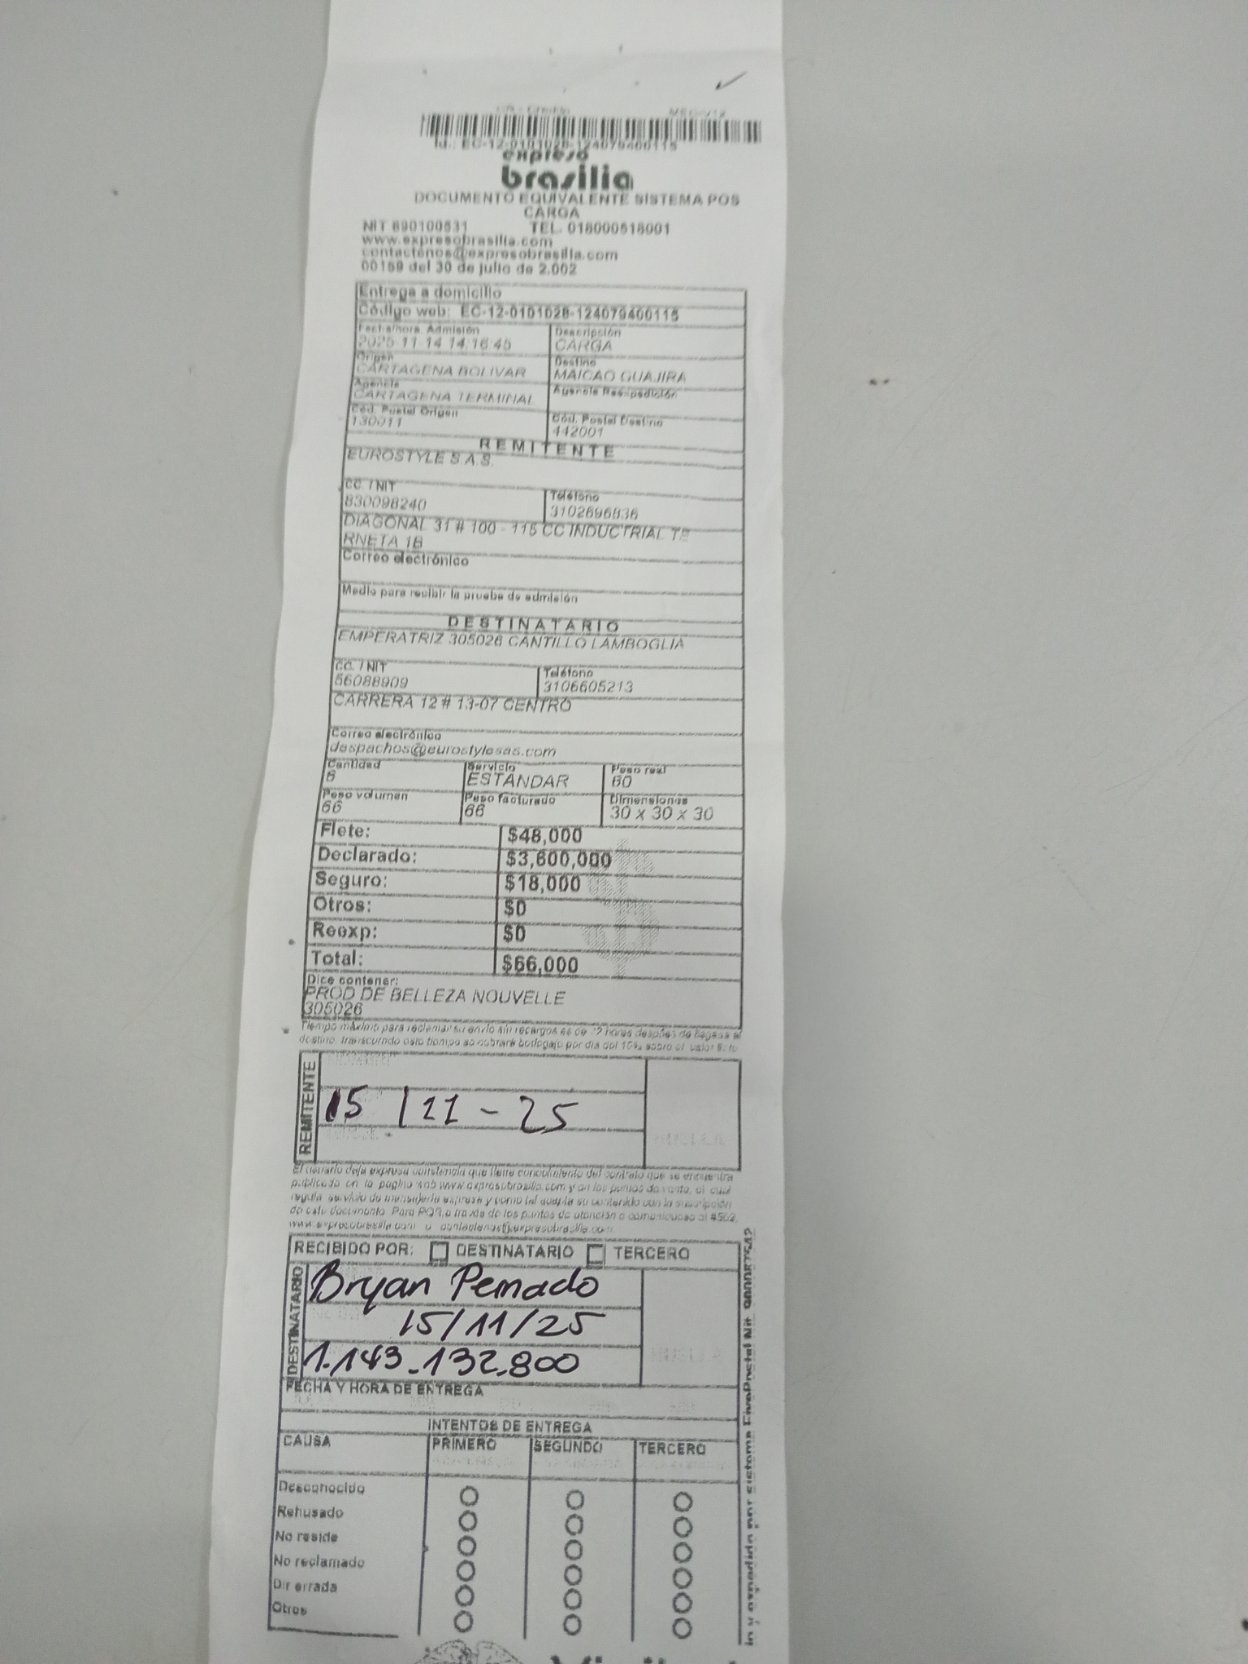 Id.: EC-12-0101028-124079400115
expreso
brasilia
DOCUMENTO EQUIVALENTE SISTEMA POS
CARGA
NIT 890100531 TEL. 018000518001
www.expresobrasilia.com
contactenos@expresobrasilia.com
00159 del 30 de julio de 2.002
Entrega a domicilio
Código web: EC-12-0101028-124079400115
Fecha/hora Admisión Descripción
2025 11 14 14:16:45 CARGA
Origen Destino
CARTAGENA BOLIVAR MAICAO GUAJIRA
Agencia Agencia Reexpedición
CARTAGENA TERMINAL
Cód. Postal Origen Cód. Postal Destino
130011 442001
REMITENTE
EUROSTYLE S.A.S.
CC. / NIT Teléfono
830098240 3102696836
DIAGONAL 31 # 100 - 115 CC INDUCTRIAL TE
RNETA 1B
Correo electrónico
Medio para recibir la prueba de admisión
DESTINATARIO
EMPERATRIZ 305026 CANTILLO LAMBOGLIA
CC. / NIT Teléfono
56088909 3106605213
CARRERA 12 # 13-07 CENTRO
Correo electrónico
despachos@eurostylesas.com
Cantidad Servicio Peso real
6 ESTANDAR 60
Peso volumen Peso facturado Dimensiones
66 66 30 x 30 x 30
Flete: $48,000
Declarado: $3,600,000
Seguro: $18,000
Otros: $0
Reexp: $0
Total: $66,000
Dice contener:
PROD DE BELLEZA NOUVELLE
305026
Tiempo máximo para reclamar su envío sin recargos es de 72 horas después de llegada al
destino, transcurrido este tiempo se cobrará bodegaje por día del 15% sobre el valor flete
REMITENTE
15 / 11 - 25
El usuario deja expresa constancia que tiene conocimiento del contrato que se encuentra
publicado en la pagina web www.expresobrasilia.com y en los puntos de venta, el cual
regula servicio de mensajería expresa y como tal acepta su contenido con la suscripción
de este documento. Para PQR a través de los puntos de atención o comunicarse al #502,
www.expresobrasilia.com o contactenos@expresobrasilia.com
RECIBIDO POR: DESTINATARIO TERCERO
DESTINATARIO
Bryan Penado
15/11/25
1.143.132.800
FECHA Y HORA DE ENTREGA
INTENTOS DE ENTREGA
CAUSA PRIMERO SEGUNDO TERCERO
Desconocido
Rehusado
No reside
No reclamado
Dir errada
Otros